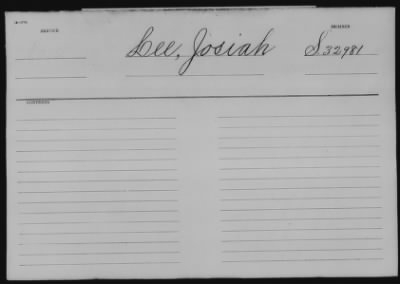 SERVICE
NUMBER
Lee, Josiah
S. 32981
CONTENTS